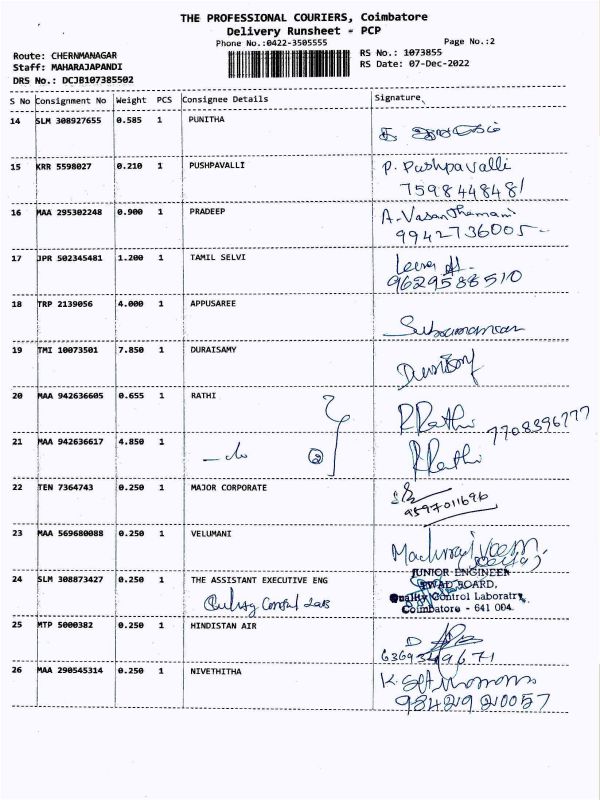 THE PROFESSIONAL COURIERS, Coimbatore
Delivery Runsheet - PCP
Phone No.:0422-3505555
Page No.:2
Route: CHERNMANAGAR
RS No.: 1073855
Staff: MAHARAJAPANDI
RS Date: 07-Dec-2022
DRS No.: DCJB107385502
S No Consignment No Weight PCS Consignee Details Signature
14 SLM 308927655 0.585 1 PUNITHA
15 KRR 5598027 0.210 1 PUSHPAVALLI P. Pushpavalli
7598448481
16 MAA 295302248 0.900 1 PRADEEP A. Vasanthamani
9942736005
17 JPR 502345481 1.200 1 TAMIL SELVI
9629588510
18 TRP 2139056 4.000 1 APPUSAREE
19 TMI 10073501 7.850 1 DURAISAMY
20 MAA 942636605 0.655 1 RATHI R Rathi 7708396777
21 MAA 942636617 4.850 1 - do ② R Rathi
22 TEN 7364743 0.250 1 MAJOR CORPORATE
9597011696
23 MAA 569680088 0.250 1 VELUMANI
24 SLM 308873427 0.250 1 THE ASSISTANT EXECUTIVE ENG
JUNIOR ENGINEER
TWAD BOARD,
Quality Control Laboratry
Coimbatore - 641 004.
Quality Control Lab
25 MTP 5000382 0.250 1 HINDISTAN AIR
6369349671
26 MAA 290545314 0.250 1 NIVETHITHA
9842920057